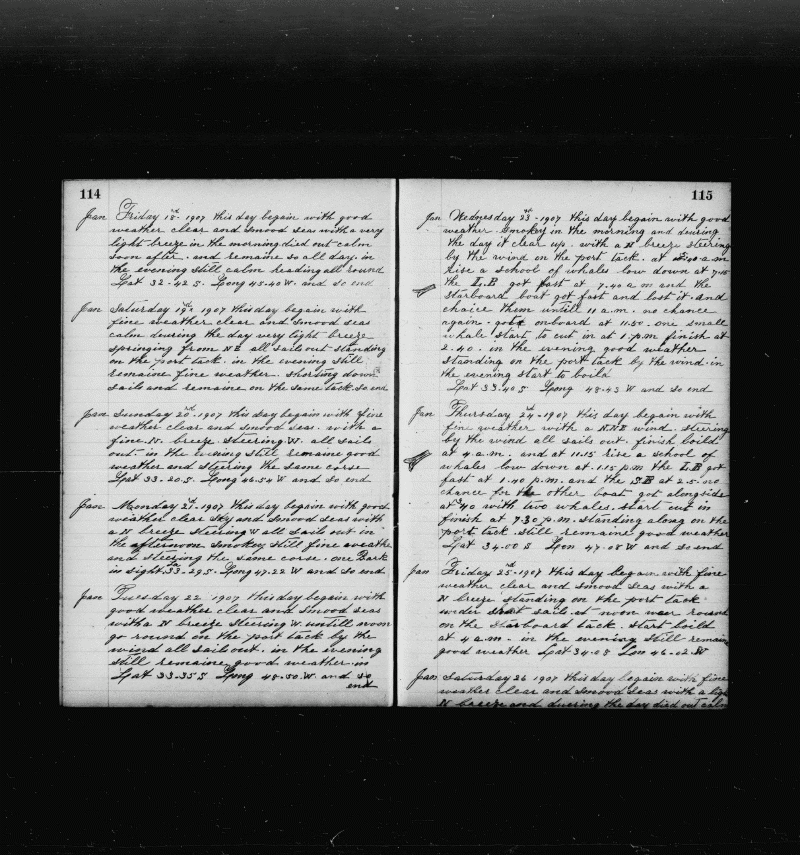 114
Jan Friday 18th 1907 this day begain with good
weather clear and smood seas with a very
light breeze in the morning died out calm
soon after. and remaine so all day. in
the evening still calm heading all round
Lat 32-42 S. Long 45-40 W. and so end
Jan Saturday 19th 1907 this day begain with
fine weather clear and smood seas
calm deuring the day very light breeze
springing from NE all sails out standing
on the port tack. in the evening still
remaine fine weather. shorting down
sails and remaine on the same tack. so end
Jan Sunday 20th 1907 this day begain with fine
weather clear and smood seas. with a
fine N. breeze. steering W. all sails
out. in the evening still remaine good
weather and steering the same corse
Lat 33-20 S. Long 46-54 W and so end
Jan Monday 21st 1907 this day begain with good
weather clear sky and smood seas with
a N breeze steering W all sails out in
the afternoon smokey still fine weather
and steering the same corse. one Bark
in sight. 33-29 S. Long 47-22 W and so end
Jan Tuesday 22 1907 this day begain with
good weather clear and smood seas
with a N breeze steering W. untill noon
go round in the port tack by the
wind all sail out. in the evening
still remaine good weather. in
Lat 33-35 S Long 48-50 W and so
end
115
Jan Wednesday 23 1907 this day begain with good
weather smokey in the morning and deuring
the day it clear up. with a N breeze steering
by the wind on the port tack. at a.m
rise a school of whales low down at 7-15
the L.B got fast at 7.40 a m and the
starboard boat got fast and lost it. and
chaice them untill 11 a.m. no chance
again. got onboard at 11.50. one small
whale start to cut in at 1 p.m finish at
2.40. in the evening good weather
standing on the port tack by the wind. in
the evening start to boild
Lat 33.40 S Long 48-43 W and so end
Jan Thursday 24 1907 this day begain with
fin weather with a N.N.E wind. steering
by the wind all sails out. finish boild
at 4 a.m. and at 11.15 rise a school of
whales low down at 1.15 p.m the L.B got
fast at 1.40 p.m. and the S.B at 2.5. no
chance for the other boat got alongside
at 40 with two whales. start cut in
finish at 7.30 p.m. standing along on the
port tack. still remaine good weather
Lat 34-00 S Lon 47-08 W and so end
Jan Friday 25 1907 this day begain with fine
weather clear and smood seas with a
N breeze standing on the port tack
under sail. at noon wear round
on the starboard tack. start boild
at 4 a.m. in the evening still remain
good weather Lat 34-08 Lon 46-02 W
Jan Saturday 26 1907 this day begain with fine
weather clear and smood seas with a ligh
N breeze and duering the day died out calm